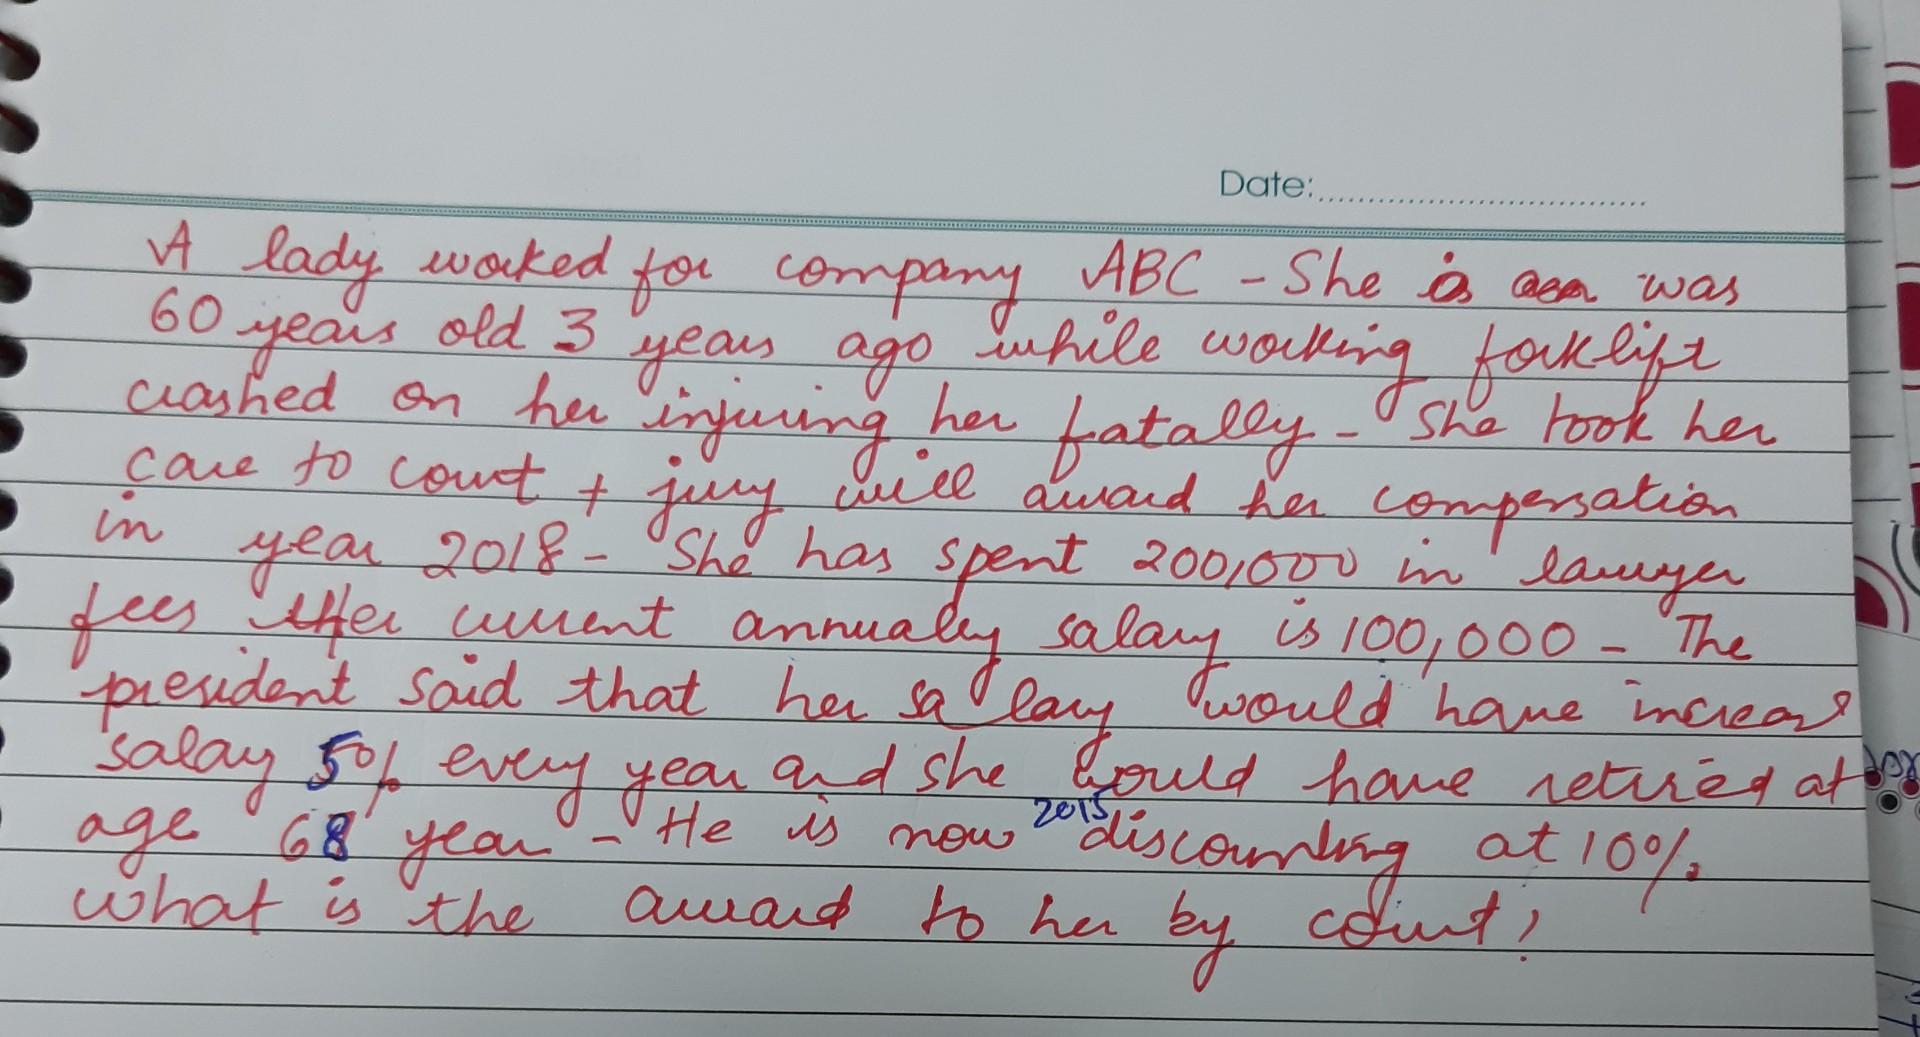 Date:
A lady worked for company ABC - She is was
60 years old 3 years ago while working forklift
crashed on her injuring her fatally - She took her
case to court + jury will award her compensation
in year 2018 - She has spent 200,000 in lawyer
fees Her current annualy salary is 100,000 - The
president said that her salary would have increase
salay 5% every year and she would have retired at
age 68 year - He is now 2015 discounting at 10%.
what is the award to her by court?